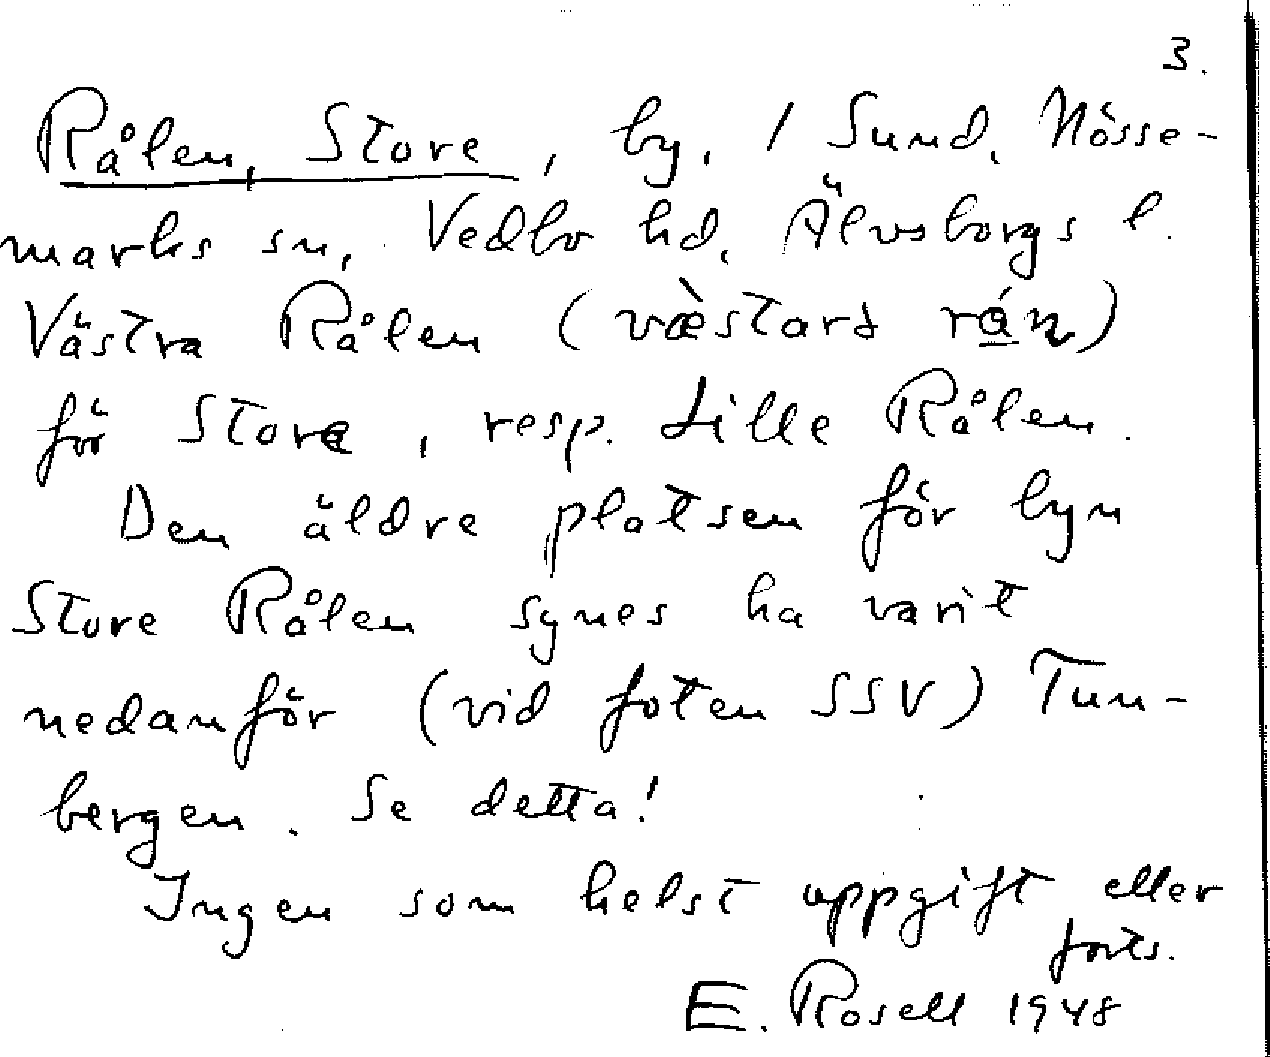 3.
Rålen, Store, by. / Sund, Nösse-
marks sn, Vedbo hd, Älvsborgs l.
Västra Rålen (væ̀stard rán)
för Store, resp. Lille Rålen.
Den äldre platsen för byn
Store Rålen synes ha varit
nedanför (vid foten SSV) Tun-
bergen. Se detta!
Ingen som helst uppgift eller
forts.
E. Rosell 1948